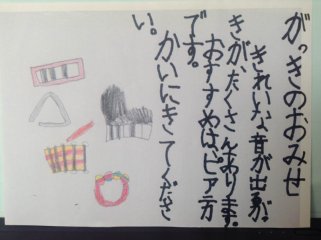 がっきのおみせ
きれいな、音が出る、が
きが、たくさんあります。
おすすめは、ピアニカ
です。
かいにきてくださ
い。